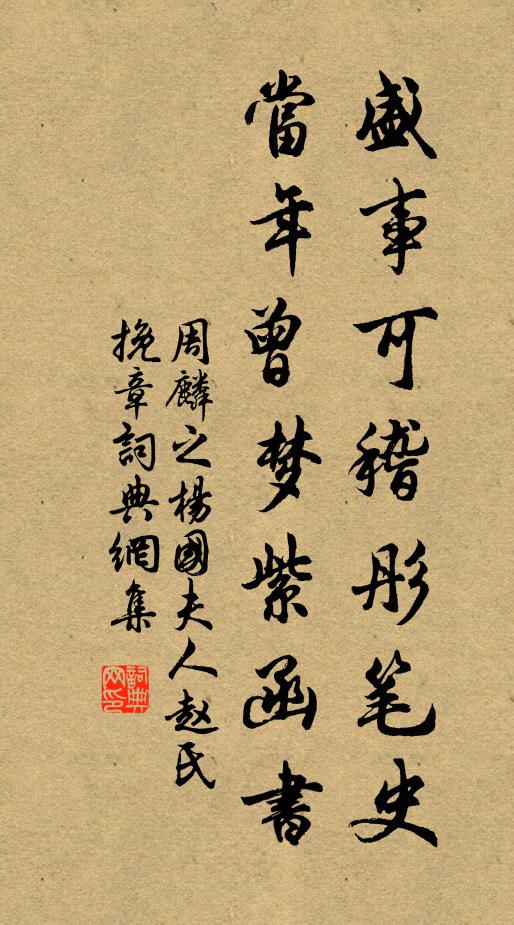 盛事可稽彤笔史
當年曾梦紫函書
周麟之楊國夫人赵氏
挽章詞典網集
詞典网印